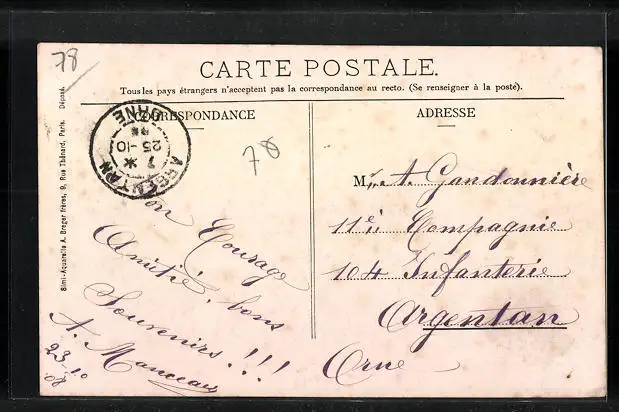 78
CARTE POSTALE.
Tous les pays étrangers n'acceptent pas la correspondance au recto. (Se renseigner à la poste).
CORRESPONDANCE
ADRESSE
Simi-Aquarelle A. Breger Frères, 9, Rue Thénard, Paris. Déposé.
ARGENTAN
7 *
25 -10
ORNE
78
Bon Courage
Amitié, bons
Souvenirs !!!
A. Manceau
23-10
08
Mr A. Gandonnière
11e Compagnie
104 Infanterie
Argentan
Orne